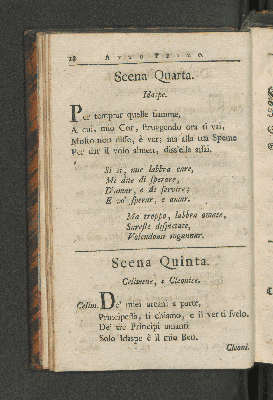 18 ATTO PRIMO.
Scena Quarta.
Idaspe.
Per temprar quelle fiamme,
A cui, mio Cor, struggendo ora ti vai,
Molto non disse, è ver; ma alla tua Speme
Per dar il volo almen, diss'ella assai.
Si sì, mie labbra care,
Mi dite di sperare,
D'amar, e di servire;
E vò sperar, e amar.
Ma troppo, labbra amate,
Sareste dispietate,
Volendomi ingannar.
Scena Quinta.
Celimene, e Cleonice.
Celim. De' miei arcani a parte,
Principessa, ti chiamo, e il ver ti svelo.
De' tre Principi amanti
Solo Idaspe è il mio Ben.
Cleoni.